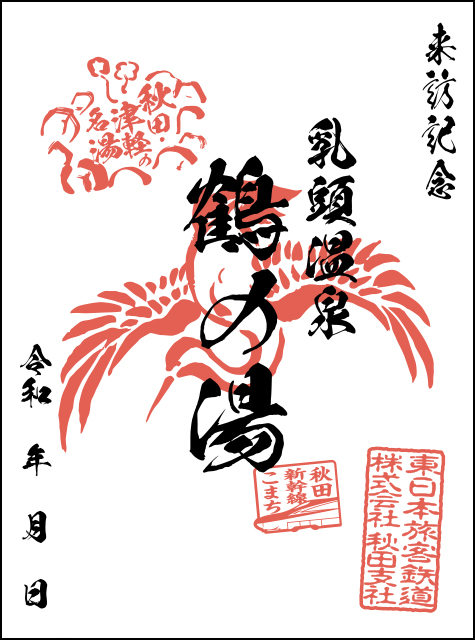 来訪記念
乳頭温泉
鶴の湯
秋田
津軽の
名湯
令和 年 月 日
秋田
新幹線
こまち
東日本旅客鉄道
株式会社 秋田支社